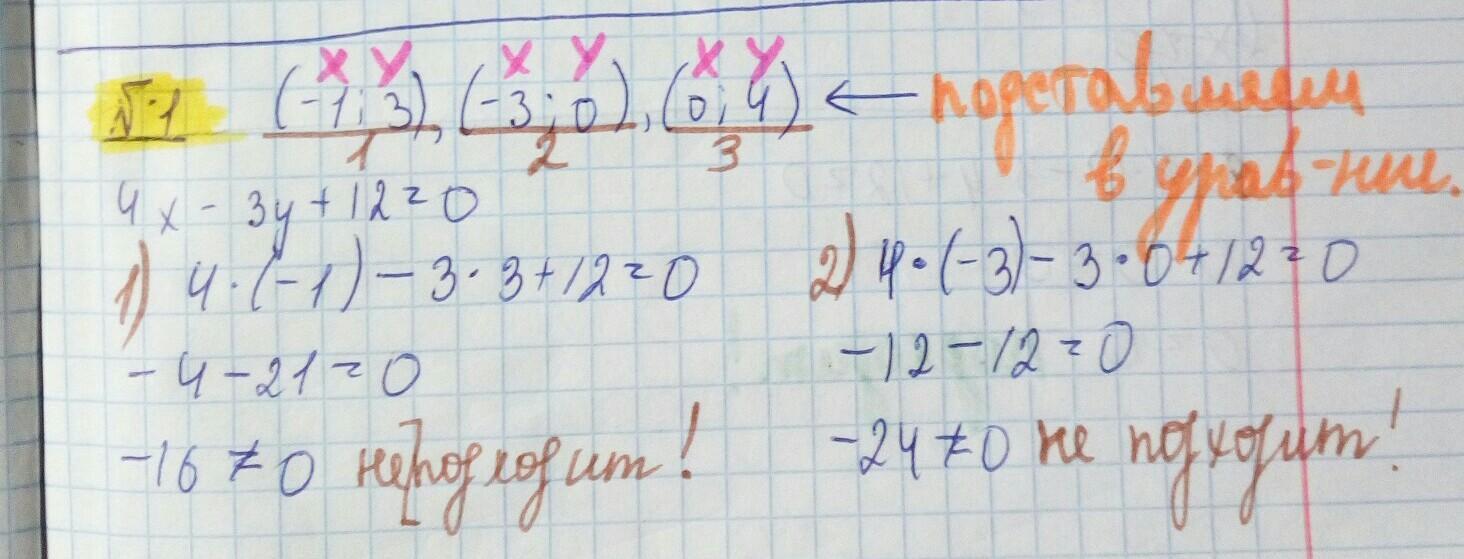 x y x y x y
№1 (-1; 3), (-3; 0), (0; 4) ← подставляем
1 2 3 в урав-ние.
4x - 3y + 12 = 0
1) 4·(-1) - 3·3 + 12 = 0
-4 - 21 = 0
-16 ≠ 0 не подходит!
2) 4·(-3) - 3·0 + 12 = 0
-12 - 12 = 0
-24 ≠ 0 не подходит!